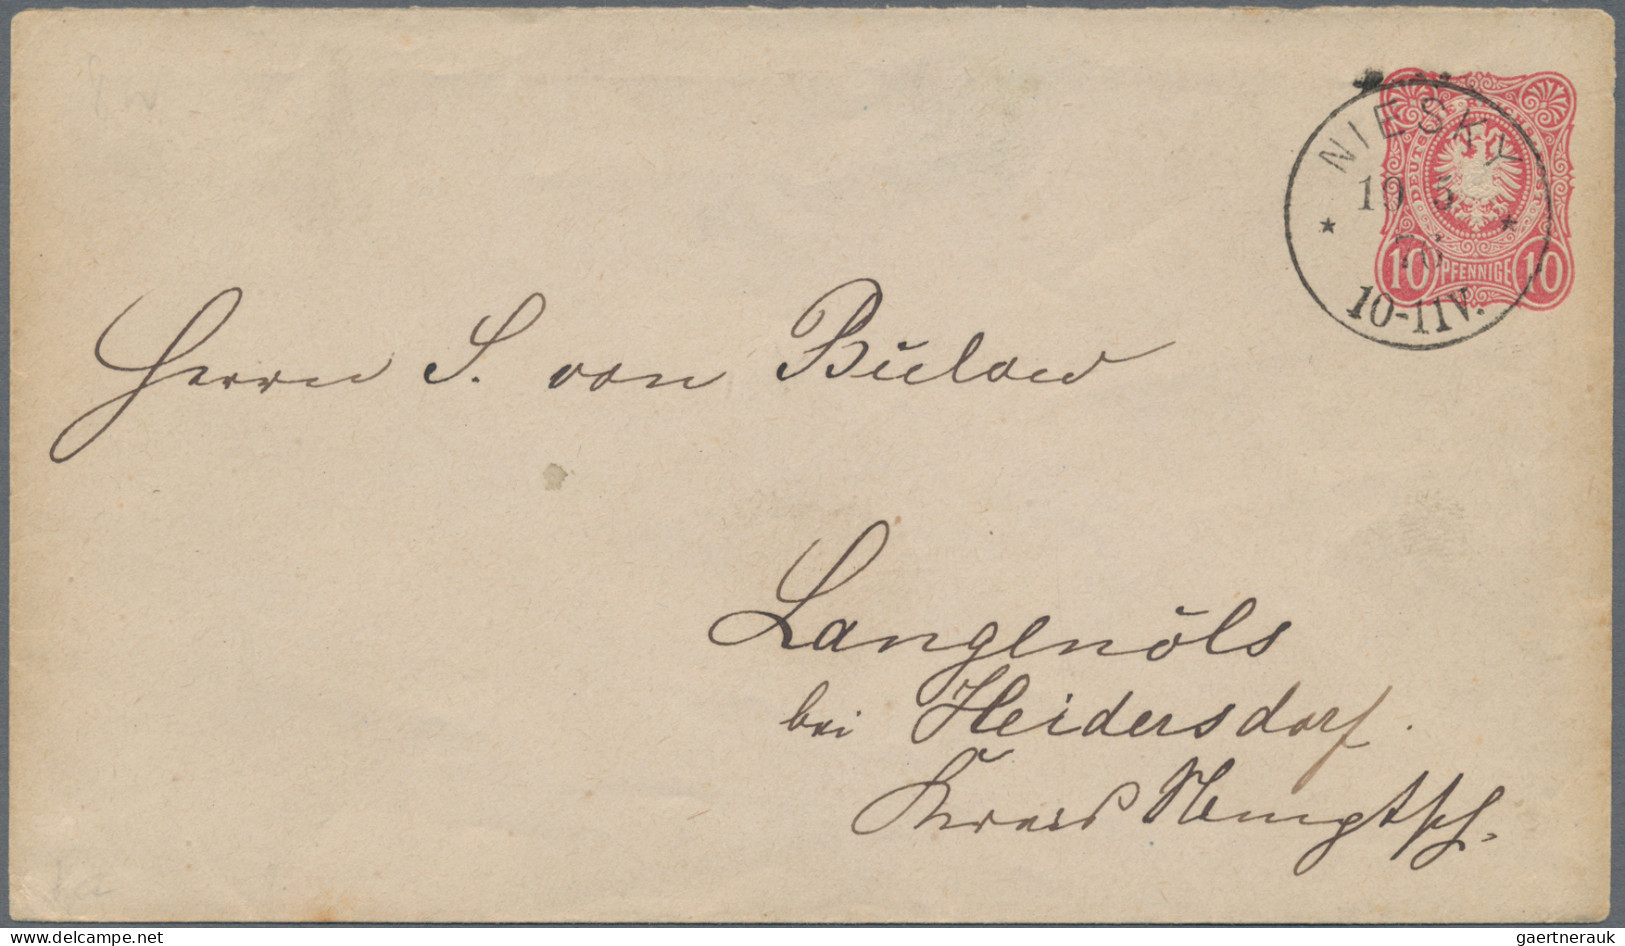 NIESKY
19 5
76
10-11V.
10 PFENNIGE 10
Herrn S. von Bülow
Langenöls
bei Heidersdorf.
Kreis Nimptsch.
www.delcampe.net
gaertnerauk